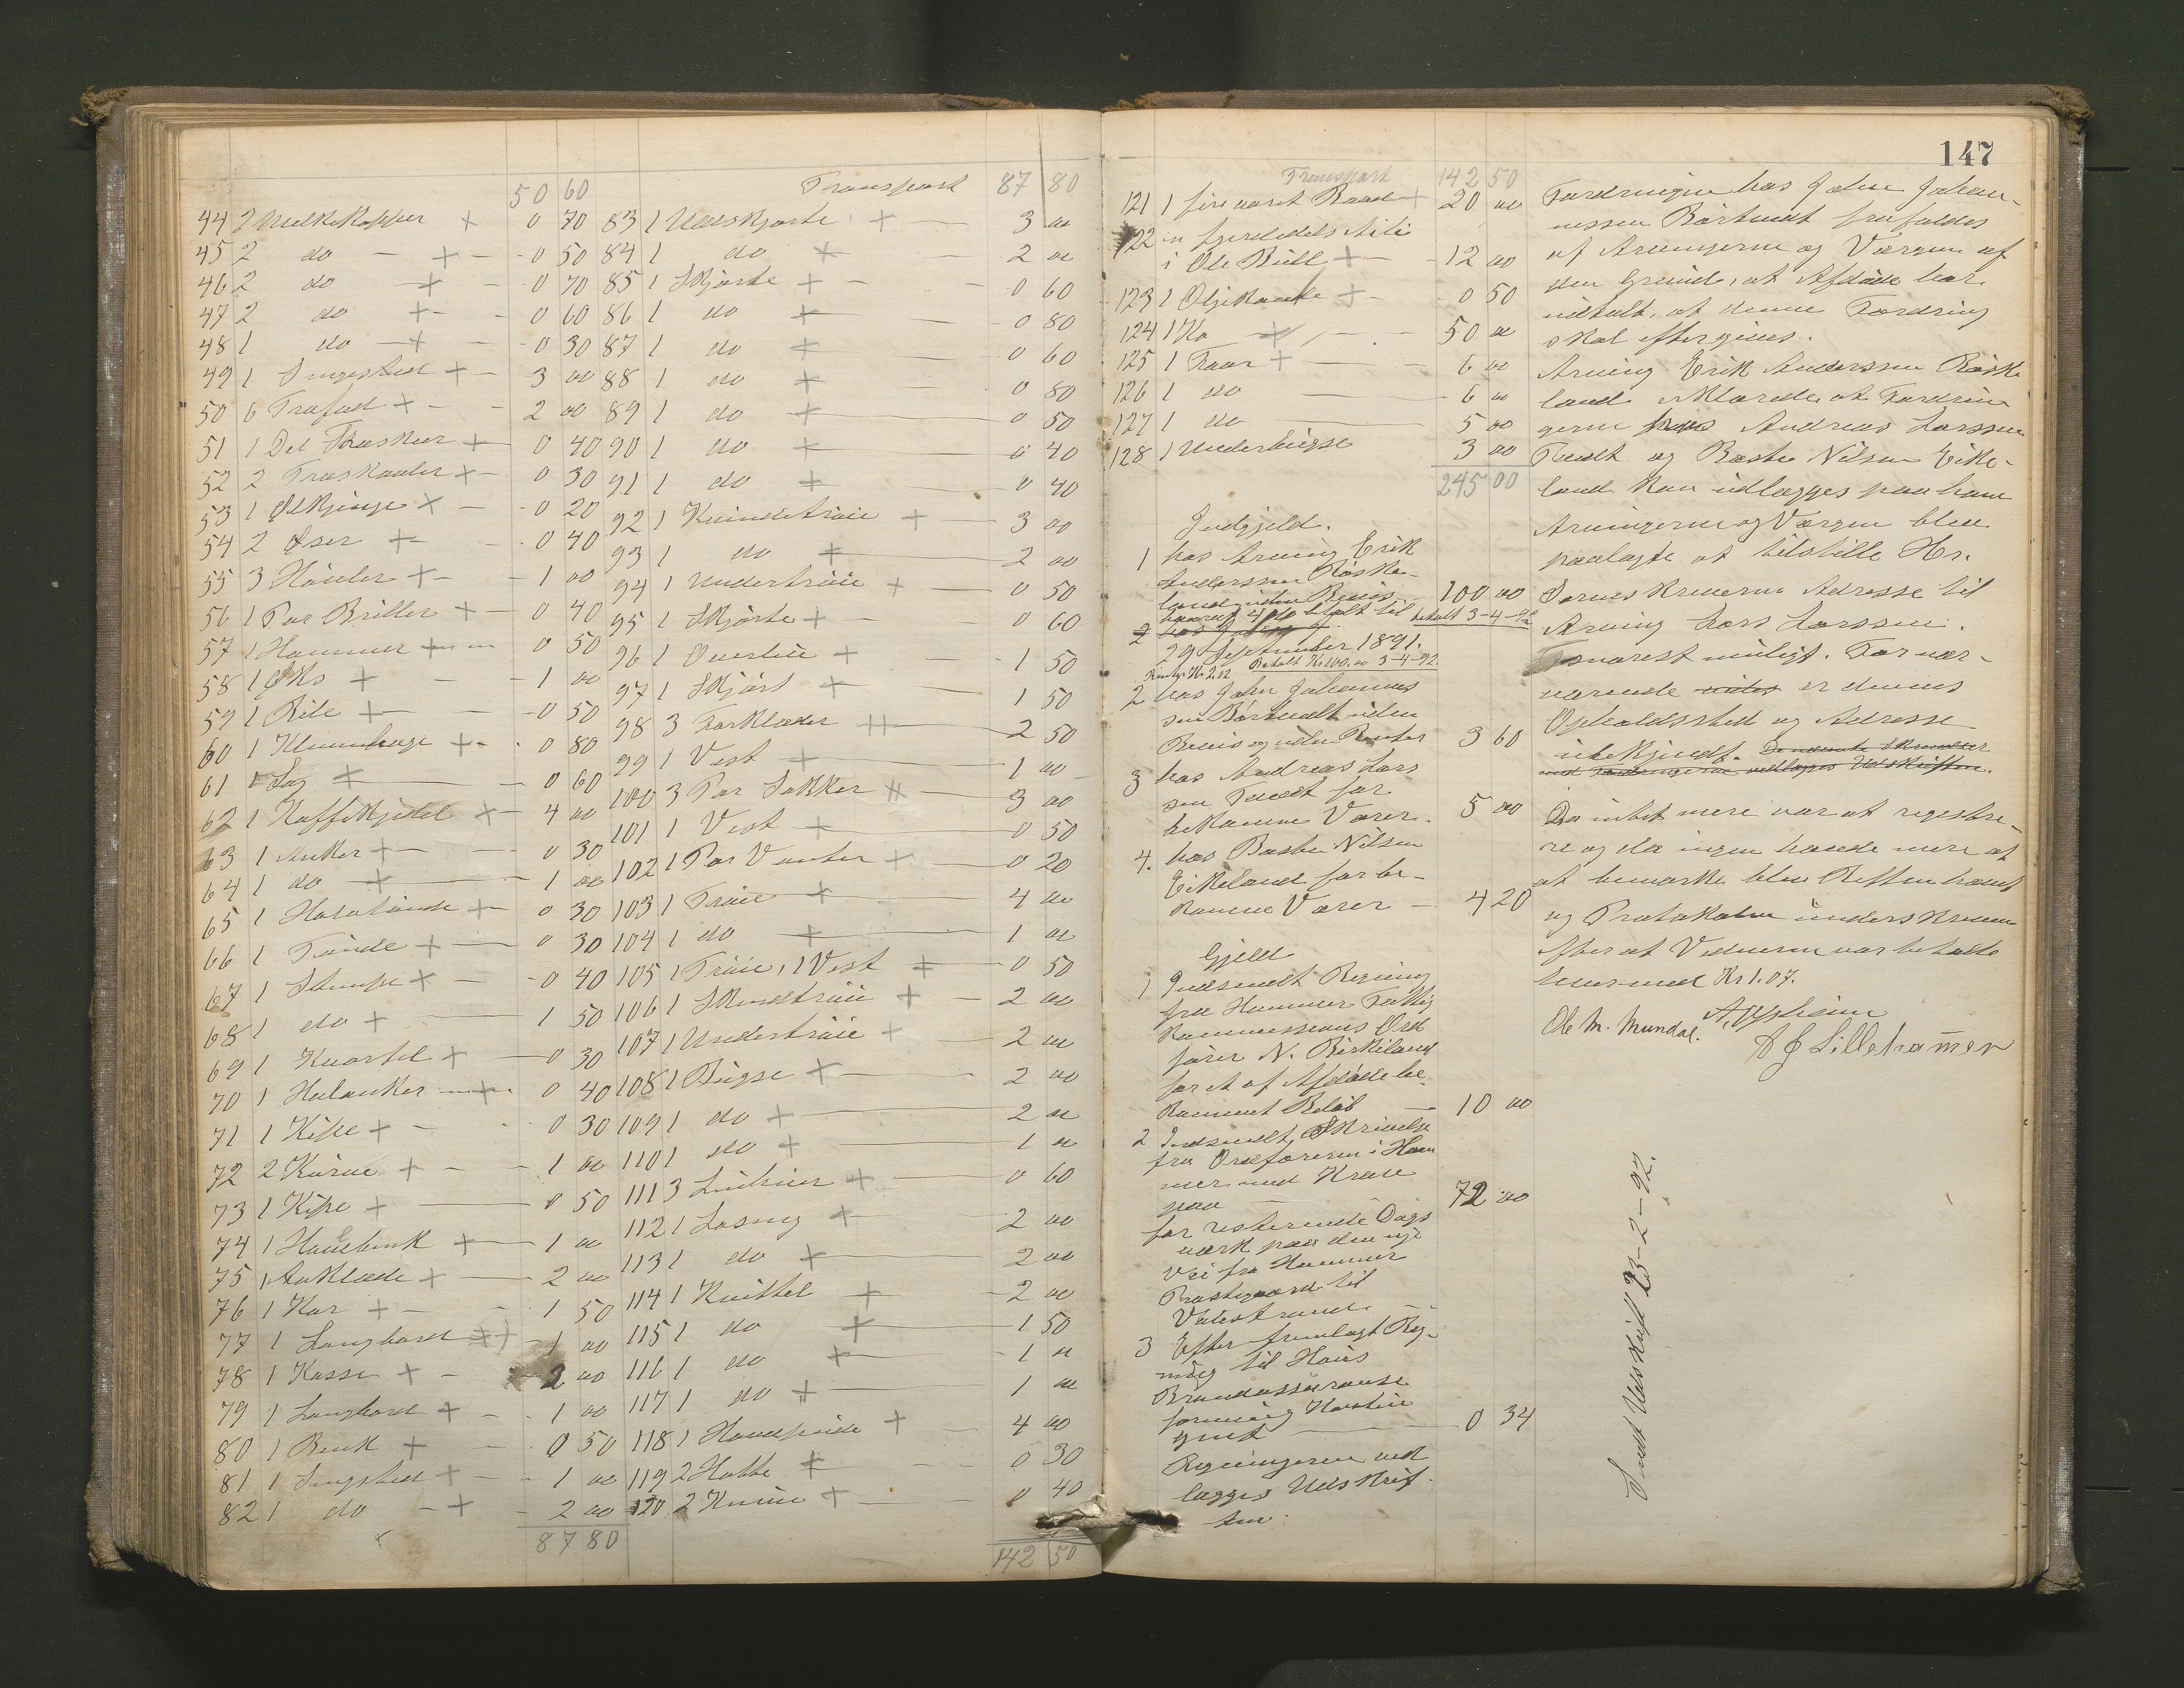 50 60
44 2 Melkekopper + 0 70
45 2 do + 0 50
46 2 do + 0 70
47 2 do + 0 60
48 1 do + 0 30
49 1 Sengested + 3 00
50 6 Træfad + 2 00
51 1 Del Træskeer + 0 40
52 2 Træskaaler + 0 30
53 1 Ølkjenge + 0 20
54 2 Øser + 0 40
55 3 + 1 00
56 1 Par Briller + 0 40
57 1 Hammer + 0 50
58 1 Øks + 1 00
59 1 Bile + 0 50
60 1 + 0 80
61 1 Sag + 0 60
62 1 Kaffekjedel + 4 00
63 1 Anker + 0 30
64 1 do + 1 00
65 1 Halvtønde + 0 30
66 1 Tønde + 0 30
67 1 Stampe + 0 40
68 1 do + 1 50
69 1 Kvartel + 0 30
70 1 Halanker + 0 40
71 1 Kipe + 0 30
72 2 Kurve + 1 00
73 1 Kipe + 0 50
74 1 + 1 00
75 1 Aaklæde + 2 00
76 1 Kar + 1 50
77 1 Langbord + 1 00
78 1 Kasse + 2 00
79 1 Langbord + 1 00
80 1 Benk + 0 50
81 1 Sengsted + 1 00
82 1 do + 2 00
87 80
Transport 87 80
83 1 Uldskjorte + 3 00
84 1 do + 2 00
85 1 Skjorte + 0 60
86 1 do + 0 80
87 1 do + 0 60
88 1 do + 0 80
89 1 do + 0 50
90 1 do + 0 40
91 1 do + 0 40
92 1 Kvindetrøie + 3 00
93 1 do + 2 00
94 1 Undertrøie + 0 50
95 1 Skjørte + 0 60
96 1 + 1 50
97 1 Skjørt + 1 50
98 3 Forklæder 2 50
99 1 Vest + 1 00
100 3 Par Sokker 3 00
101 1 Vest + 0 50
102 1 Par Vanter + 0 20
103 1 Trøie + 4 00
104 1 do + 1 00
105 1 Trøie, 1 Vest + 0 50
106 1 Skindtrøie + 2 00
107 1 Undertrøie + 2 00
108 1 Buxse + 2 00
109 1 do + 2 00
110 1 do + 1 00
111 3 Linhuer + 0 60
112 1 + 2 00
113 1 do + 2 00
114 1 Kvittel + 2 00
115 1 do + 1 50
116 1 do + 1 00
117 1 do + 1 00
118 1 + 4 00
119 2 Hatte + 0 30
120 2 Knive + 0 40
142 50
147
Transport 142 50
121 1 fireaaret Baad + 20 00
122 en fjerdedels
i Ole Bull + 12 00
123 1 Oljekande + 0 50
124 1 Ko + 50 00
125 1 Faar + 6 00
126 1 do 6 00
127 1 do 5 00
128 1 Underbuxse 3 00
245 00
Indgjeld.
1 hos Arving Erik
Anderssen Røske-
land uden Bevis 100 00
hvoraf 4 pto betalt til betalt 3-4-92
29 September 1891.
Betalt Kr 100.00 3-4-92.
2 hos John Johannes
sen Børtvedt uden
Bevis og uden Renter 3 60
3 hos Andreas Lars
sen Tvedt for
bekomne Varer. 5 00
4. hos Baste Nilsen
Eikeland for be-
komne Varer 4 20
Gjeld
1 Indsendt Regning
fra Hammer Fattig
kommissions Ord
fører N. Birkeland
for et af Afdøde be-
kommet Beløb 10 00
2 Indsendt Skrivelse
fra Ordføreren i Ham
mer med Krav
paa 72 00
for resterende Dags
værk paa den nye
Vei fra Hammer
Prestegaard til
Valestrand.
3 Efter fremlagt Reg-
ning til Haus
Brandassurance
forening
0 34
Regningerne ved
lægges Udskrif-
ten.
Fordringen hos John Johan-
nessen Børtvedt frafaldes
af Arvingerne og Værgen af
den Grund, at Afdøde har
udtalt, at denne Fordring
skal eftergives.
Arving Erik Anderssen Røske
land erklærede, at Fordrin
gerne hos Andreas Larssen
Tvedt og Baste Nilsen Eike-
land kan udlægges paa ham
Arvingerne og Værgen blev
paalagte at tilstille Hr.
Sorenskriveren Adresse til
Arving Lars Larssen.
snarest muligt. For nær-
værende er dennes
Opholdssted og Adresse
ubekjendt.
Da intet mere var at registre-
re og da ingen havde mere at
at bemærke blev Retten hævet
og Protokollen underskreven
efter at Vidnerne var betalte
hver med Kr 1.07.
Ole M. Mundal.
Lillehammer
Sendt Udskrift 23-2-92.